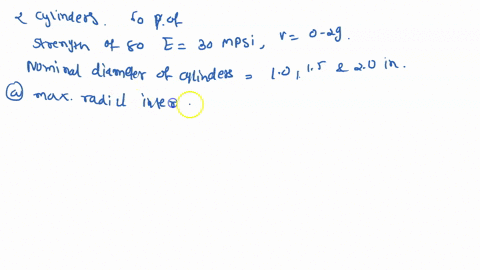 2 cylinders. So p. of
strength of 80 E = 30 Mpsi, v = 0-29.
Nominal diameter of cylinders = 1.0, 1.5 & 2.0 in.
a max. radial